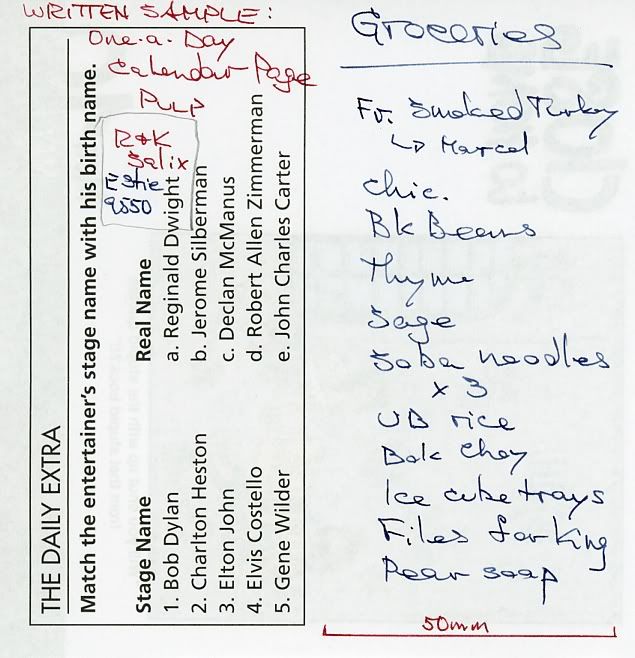 WRITTEN SAMPLE:
One-a-Day
Calendar Page
PULP
R&K
Salix
Estie
9550
THE DAILY EXTRA
Match the entertainer's stage name with his birth name.
Stage Name Real Name
1. Bob Dylan a. Reginald Dwight
2. Charlton Heston b. Jerome Silberman
3. Elton John c. Declan McManus
4. Elvis Costello d. Robert Allen Zimmerman
5. Gene Wilder e. John Charles Carter
Groceries
Fr. Smoked Turkey
↳ Marcel
Chic.
Bk Beans
Thyme
Sage
Soba noodles
x 3
UB rice
Bok Choy
Ice cube trays
Files for King
Pear soap
50mm